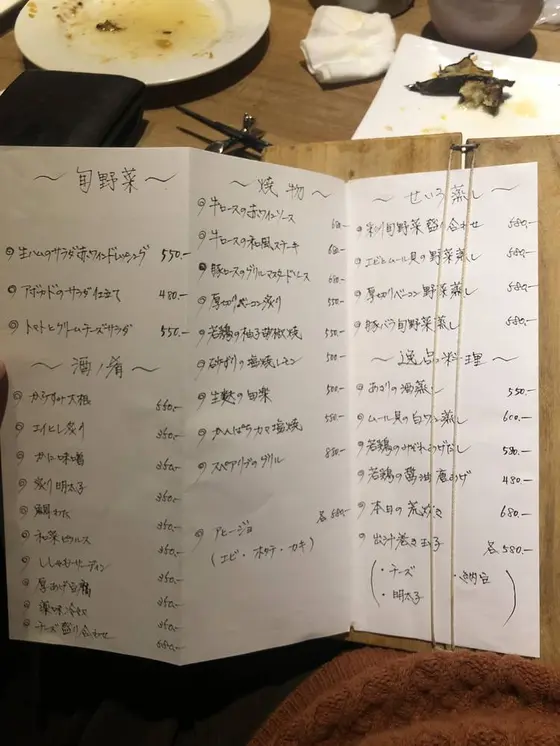 〜 旬野菜 〜
◎ 生ハムのサラダ赤ワインドレッシング 550.-
◎ アボカドのサラダ仕立て 480.-
◎ トマトとクリームチーズサラダ 550.-
〜 酒ノ肴 〜
◎ からすみ大根 550.-
◎ エイヒレ炙り 350.-
◎ かに味噌 350.-
◎ 炙り明太子 350.-
◎ 350.-
◎ 和菜ピクルス 350.-
◎ ししゃもサーディン 350.-
◎ 厚あげ豆腐 350.-
◎ 薬味冷奴 350.-
◎ チーズ盛り合わせ 680.-
〜 焼物 〜
◎ 牛ロースの赤ワインソース
◎ 牛ロースの和風ステーキ
◎ 豚ロースのグリルマスタードソース
◎ 厚切りベーコン炙り 550.-
◎ 若鶏の柚子胡椒焼 550.-
◎ 砂ずりの塩焼レモン 500.-
◎ 生麩の田楽 500.-
◎ かんぱちカマ塩焼 550.-
◎ スペアリブのグリル 850.-
◎ アヒージョ 各 680.-
(エビ・ホタテ・カキ)
〜 せいろ蒸し 〜
◎ 彩り旬野菜盛り合わせ 580.-
◎ エビとムール貝の野菜蒸し 580.-
◎ 厚切りベーコン野菜蒸し 580.-
◎ 豚バラ旬野菜蒸し 580.-
〜 逸品料理 〜
◎ あさりの酒蒸し 550.-
◎ ムール貝の白ワイン蒸し 600.-
◎ 若鶏のみぞれあげだし 580.-
◎ 若鶏の醤油唐あげ 480.-
◎ 本日の荒炊き 680.-
◎ 出汁巻き玉子 各 580.-
(・チーズ ・納豆
・明太子)